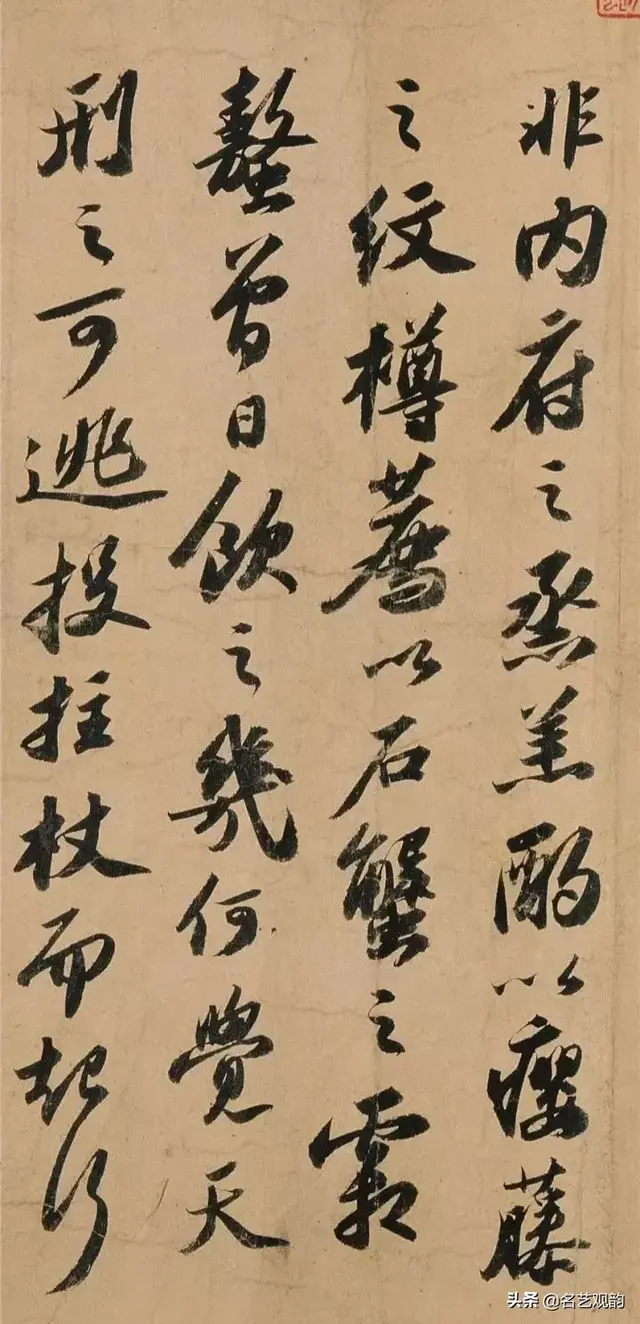 非内府之烝羔酌以瘿藤
之纹樽荐以石蟹之霜
螯曾日饮之几何觉天
刑之可逃投拄杖而起行
头条 @名艺观韵